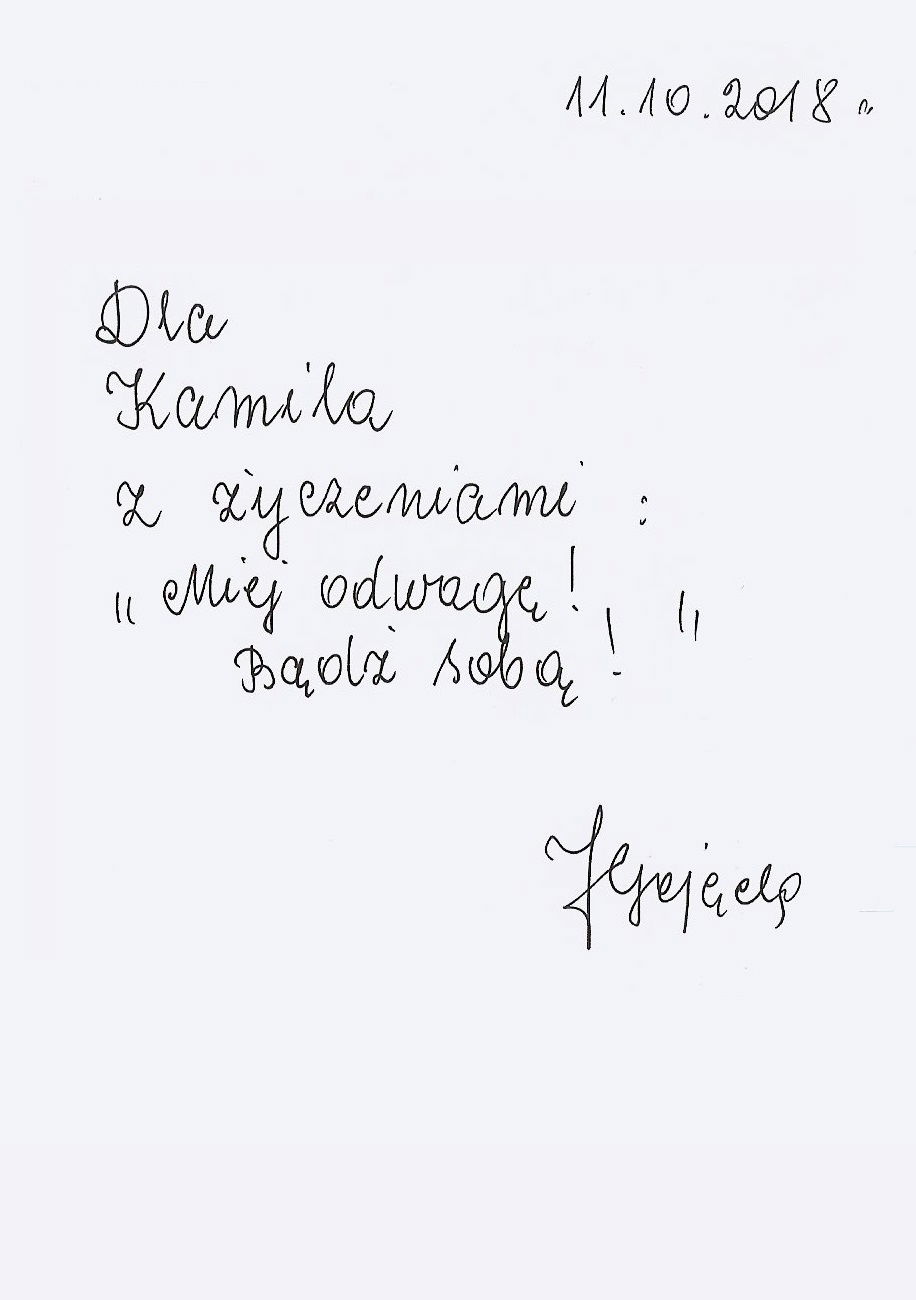 11.10.2018 r.
Dla
Kamila
z życzeniami :
„Miej odwagę!
Bądź sobą! "